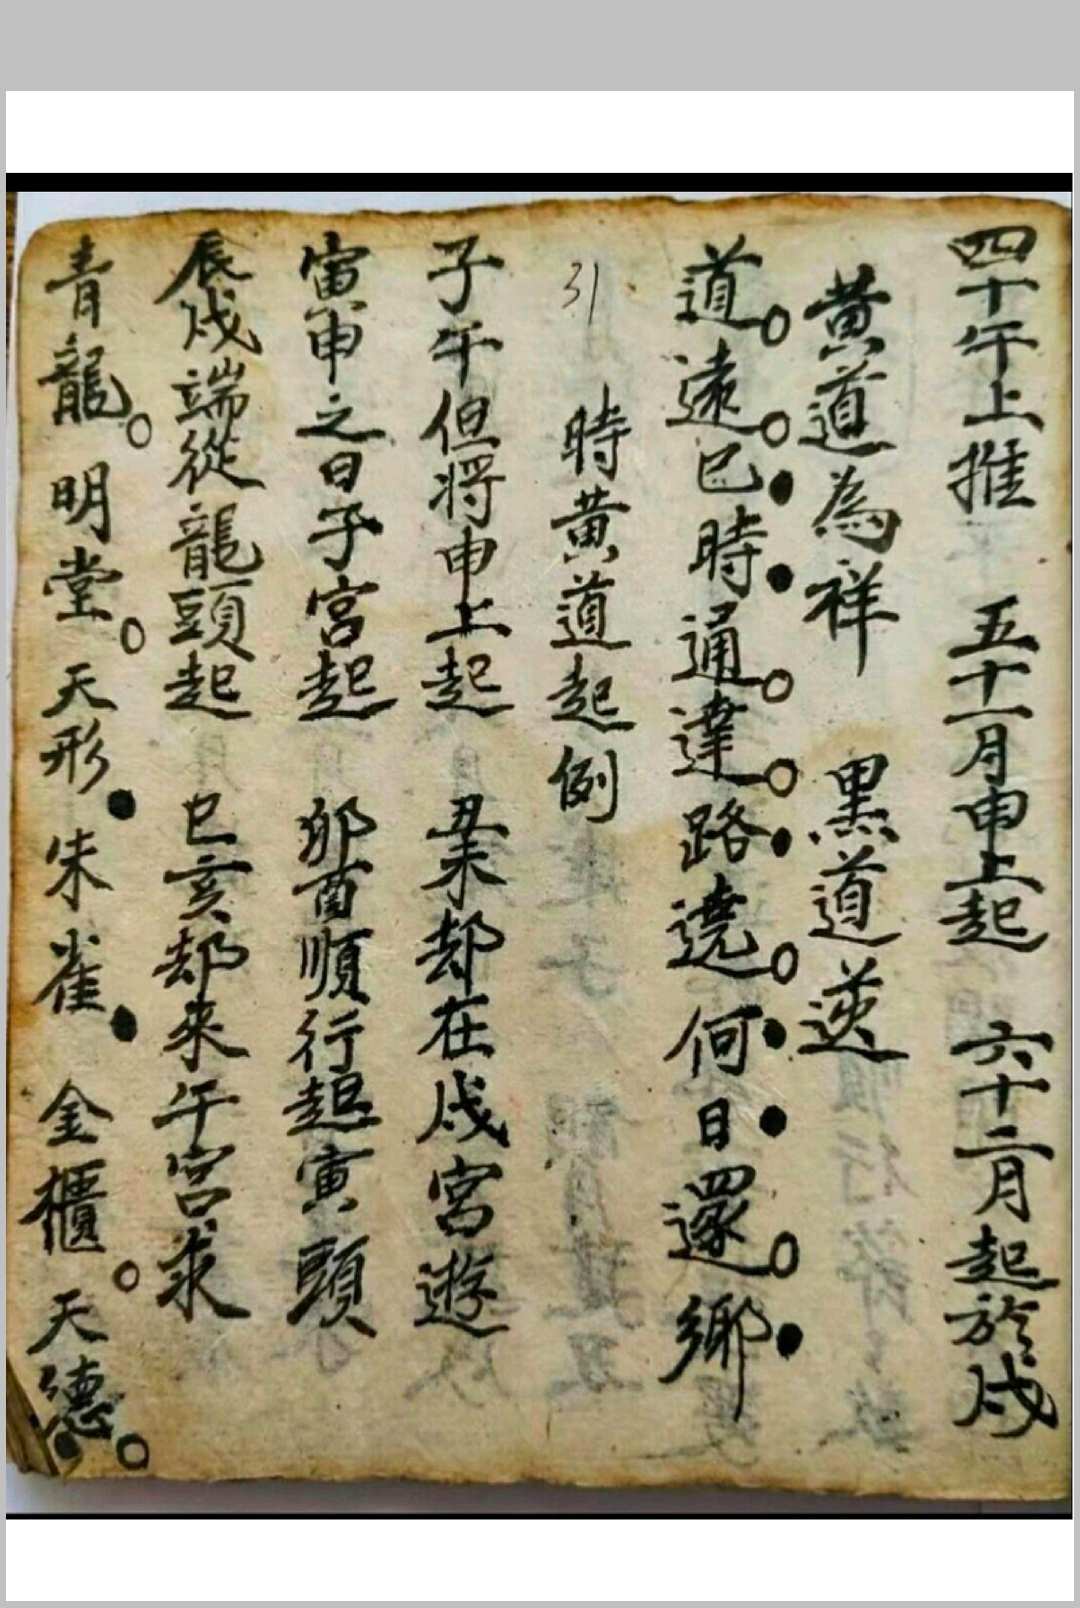 四十午上推　五十一月申上起　六十二月起於戍
黄道為祥　黑道逆
道○遠○巳●時●通○達○路●遶○何●日●還○鄉●
31
時黄道起例
子午但将申上起　丑未却在戍宮遊
寅申之日子宮起　卯酉順行起寅頭
辰戍端從龍頭起　巳亥却来午宮求
青龍○明堂○天形●朱雀●金櫃○天德○